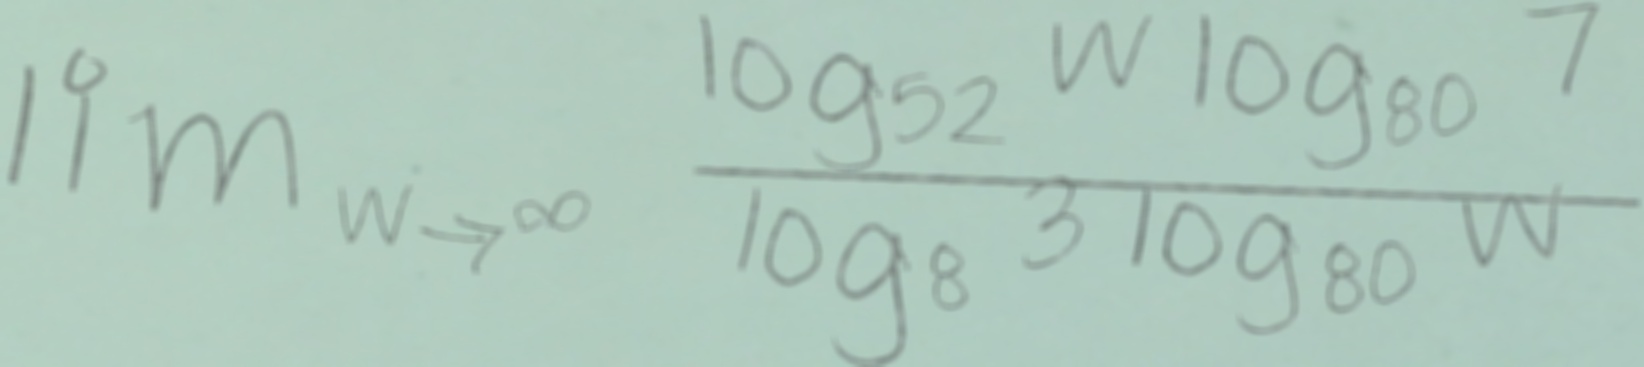 lim w→∞ \frac{log_{52} w log_{80} 7}{log_{8} 3 log_{80} w}